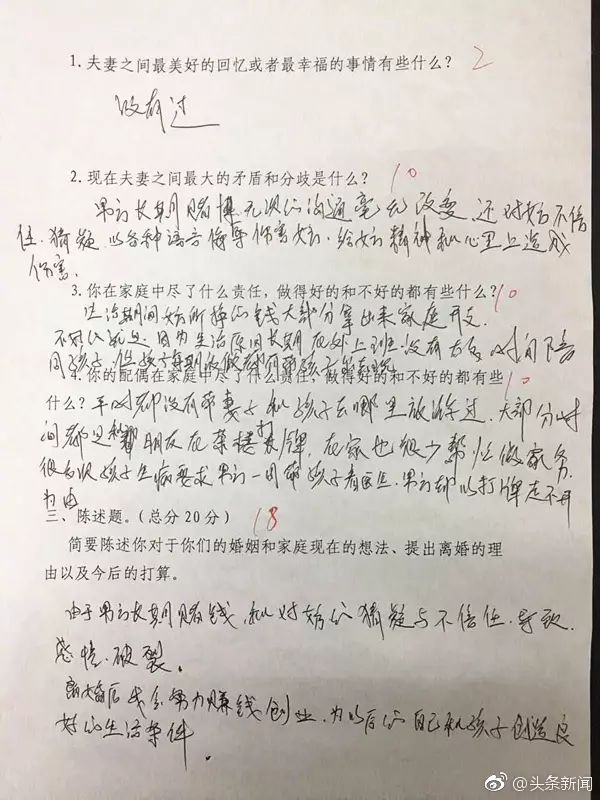 1. 夫妻之间最美好的回忆或者最幸福的事情有些什么? 2
没有过
2. 现在夫妻之间最大的矛盾和分歧是什么? 10
男方长期赌博无次的沟通毫无改变,还对女方不信
任.猜疑.以各种语言侮辱伤害女方.给女方精神和心里上造成
伤害.
3. 你在家庭中尽了什么责任,做得好的和不好的都有些什么? 10
生活期间女方所挣的钱大部分拿出来家庭开支.
不好的就是因为生活原因长期在外上班没有太多时间陪
同孩子.但孩子每期放假都有带孩子
4. 你的配偶在家庭中尽了什么责任,做得好的和不好的都有些
什么? 10 平时都没有带妻子和孩子去哪里放游过.大部分时
间都是和朋友在茶楼打牌,在家也很少帮忙做家务.
很多次孩子生病要求男方一同带孩子看医生.男方都以打牌走不开
为由
三、陈述题。(总分20分) 18
简要陈述你对于你们的婚姻和家庭现在的想法、提出离婚的理
由以及今后的打算。
由于男方长期赌钱,和对女方的猜疑与不信任.导致.
感情.破裂.
离婚后我会努力赚钱创业.为以后的自己和孩子创造良
好的生活条件.
@头条新闻